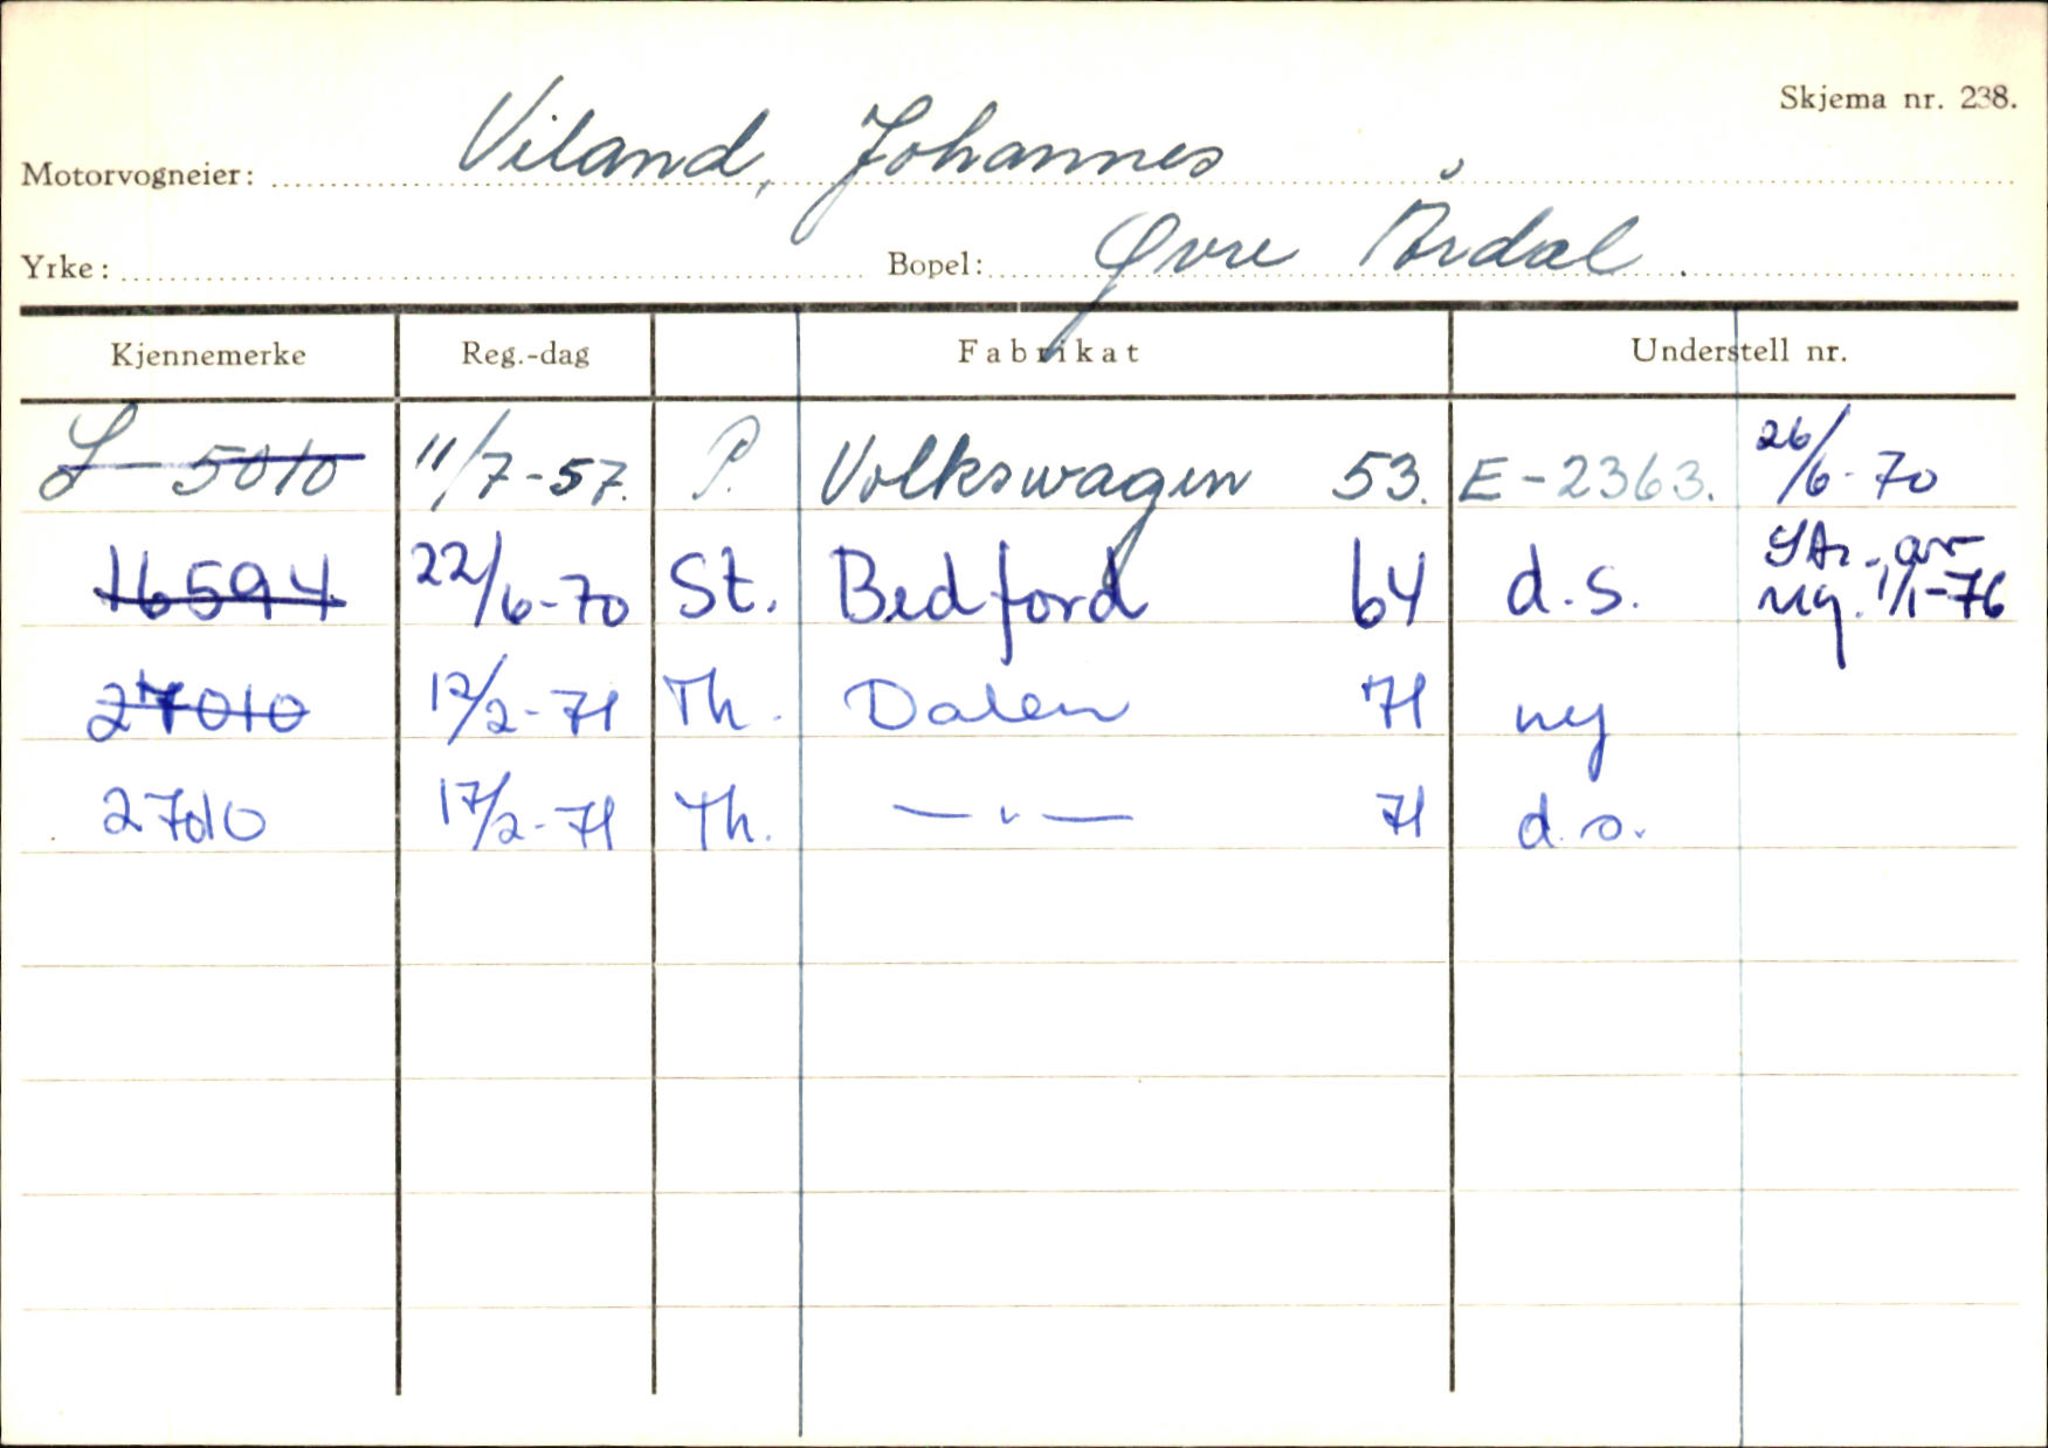 Skjema nr. 238.
Motorvogneier: Viland, Johannes
Yrke: Bopel: Øvre Årdal.
Kjennemerke Reg.-dag Fabrikat Understell nr.
S- 5010 11/7-57. P. Volkswagen 53. E-2363. 26/6-70
16594 22/6-70 St. Bedford 64 d.s. Str. av reg. 1/1-76
27010 12/2-71 Th. Dalen 71 ny
27010 17/2-71 Th. —"— 71 d.s.